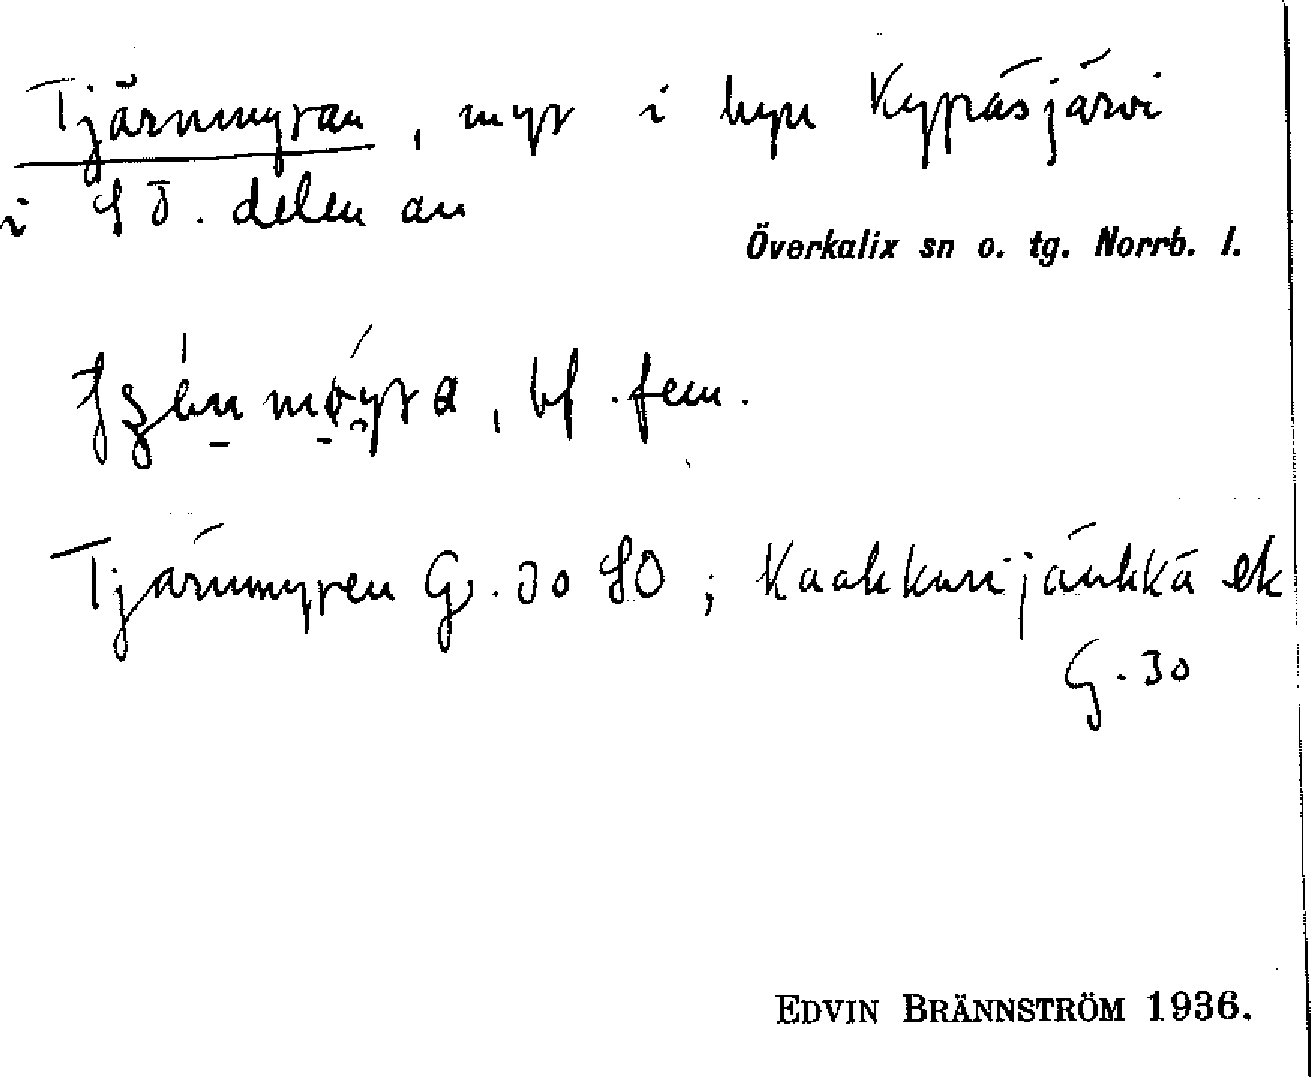 Tjärnmyran, myr i byn Kypäsjärvi
i SÖ. delen av
Överkalix sn o. tg. Norrb. l.
bf. fem.
Tjärnmyren G. 30 SO; Kaakkurijänkkä ek
G. 30
EDVIN BRÄNNSTRÖM 1936.